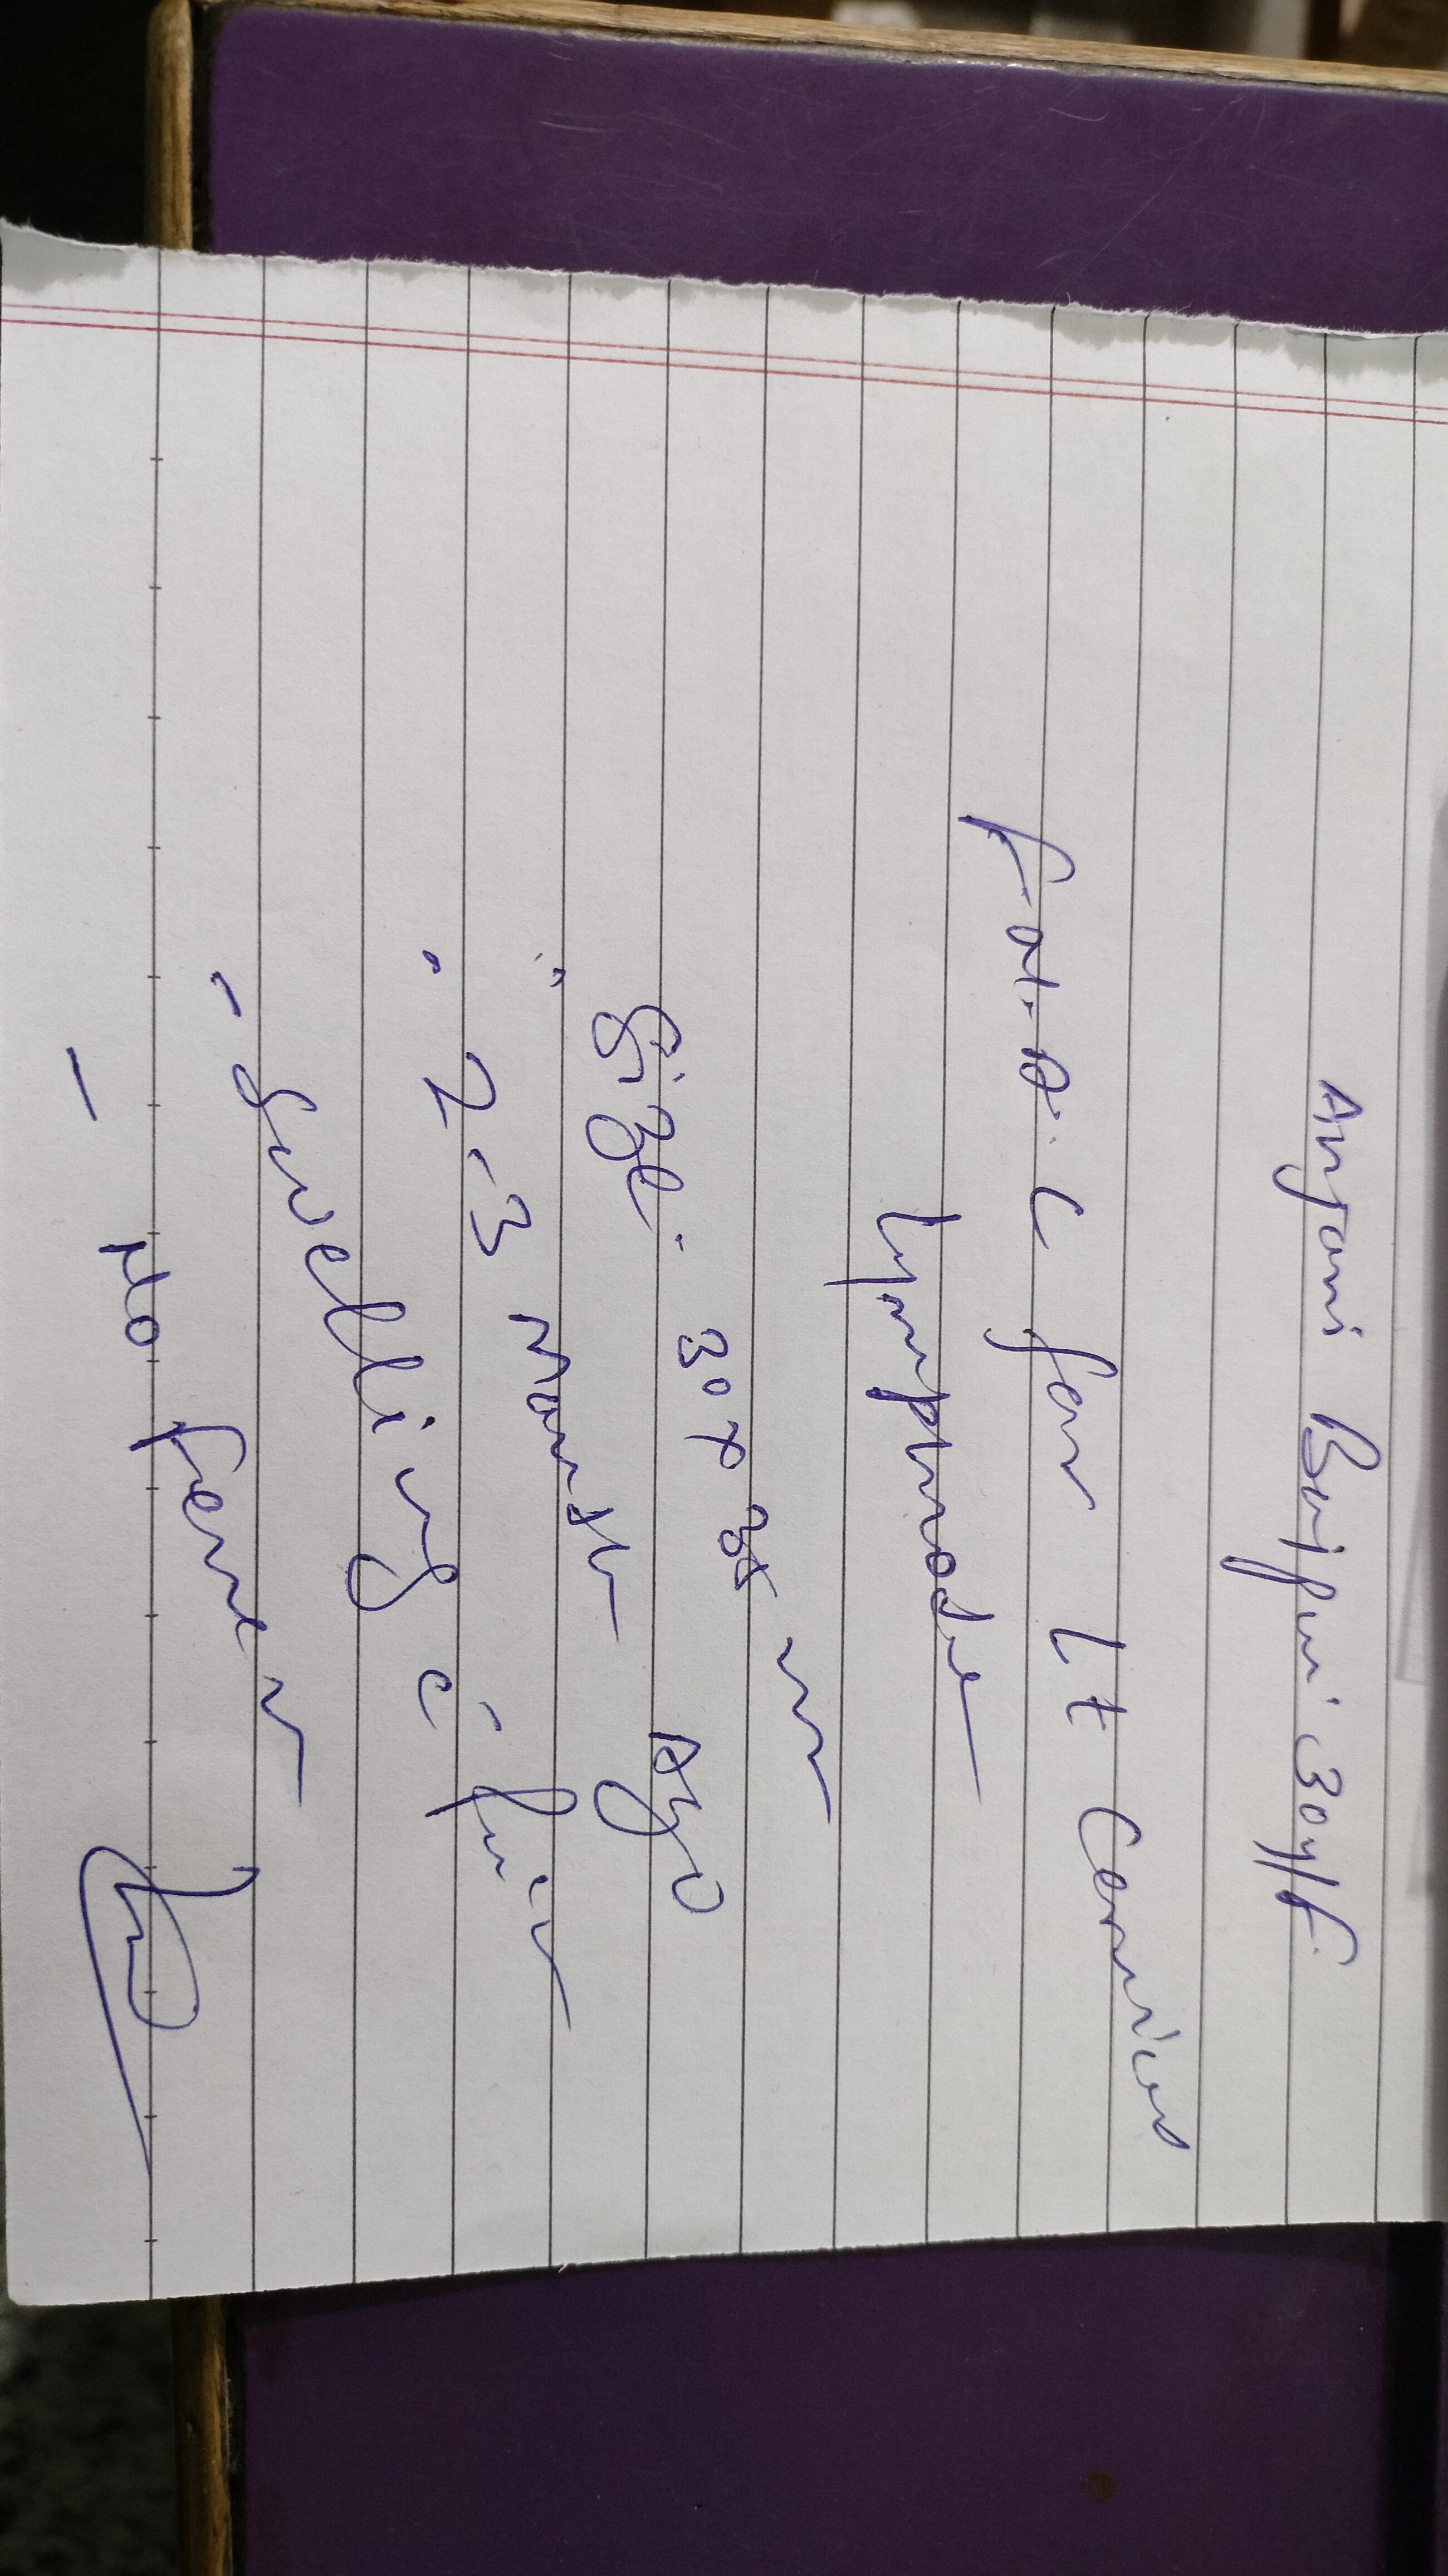 Anjani Bajpai 30y/F.
F.N.A.C for Lt Cervical
Lymphnode
Size - 30 x 35 mm
- 2-3 Month Ago
- Swelling c̄ Pain
- No fever